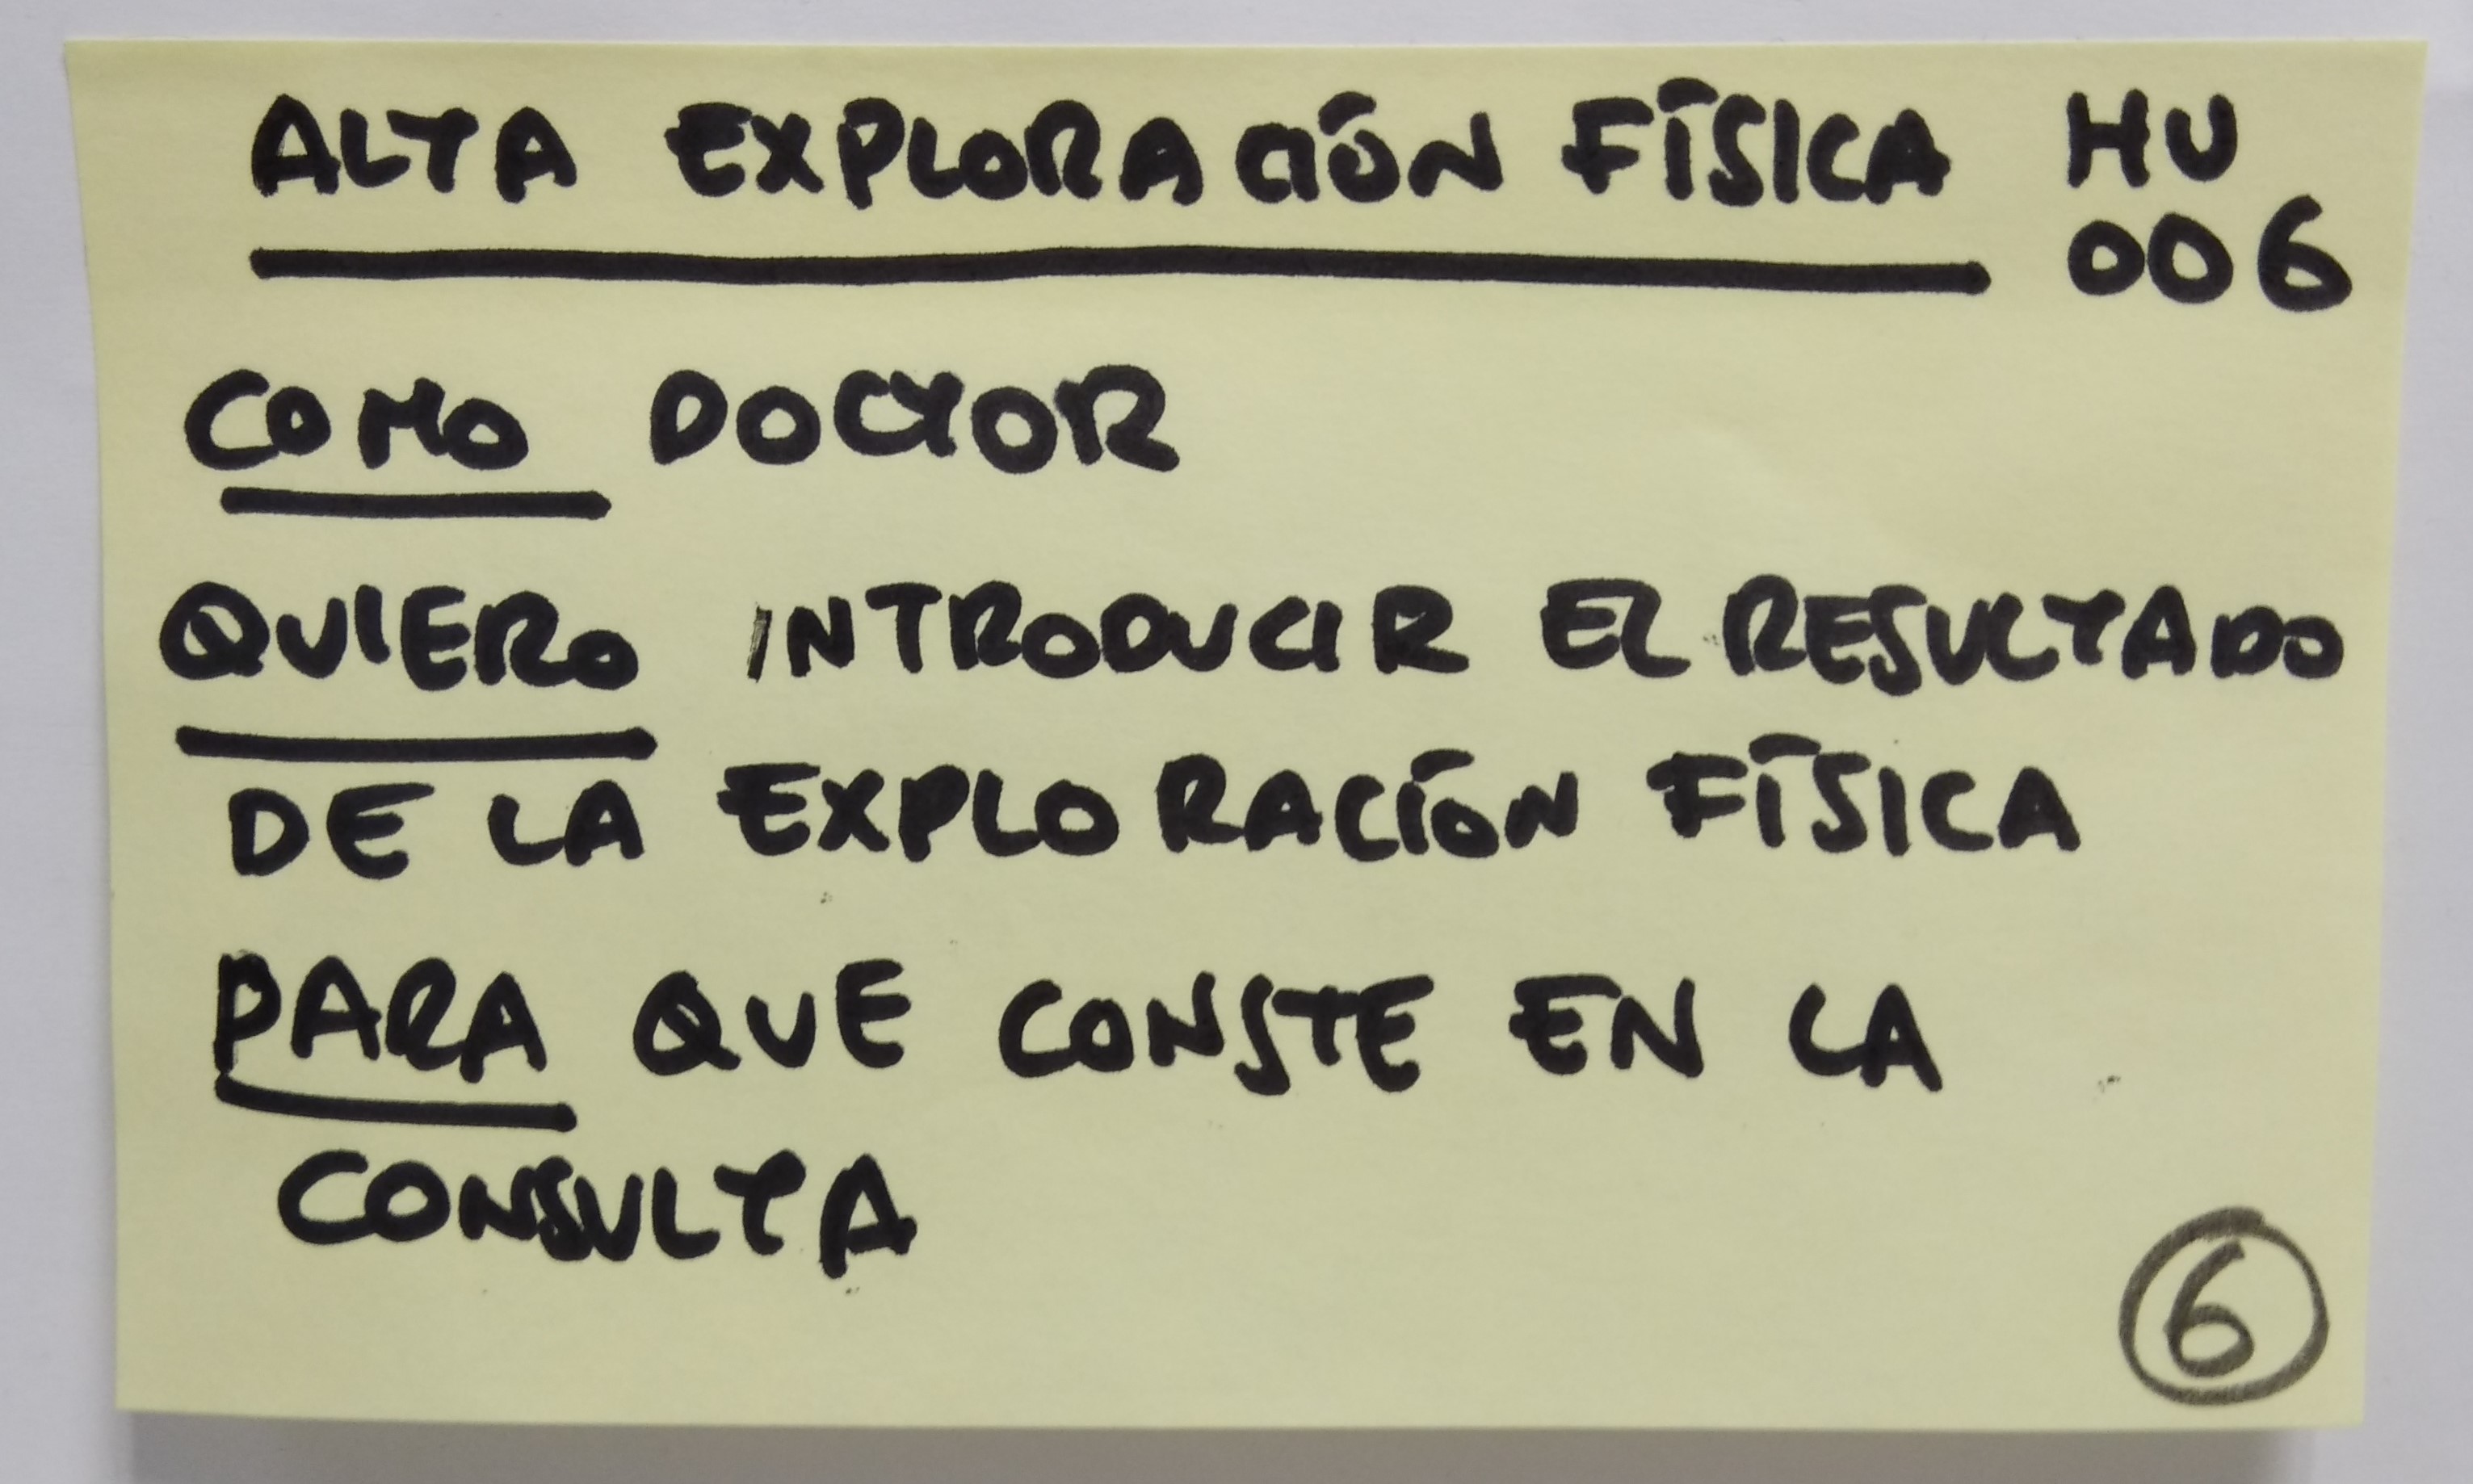 ALTA EXPLORACIÓN FÍSICA HU
006
COMO DOCTOR
QUIERO INTRODUCIR EL RESULTADO
DE LA EXPLORACIÓN FÍSICA
PARA QUE CONSTE EN LA
CONSULTA
6